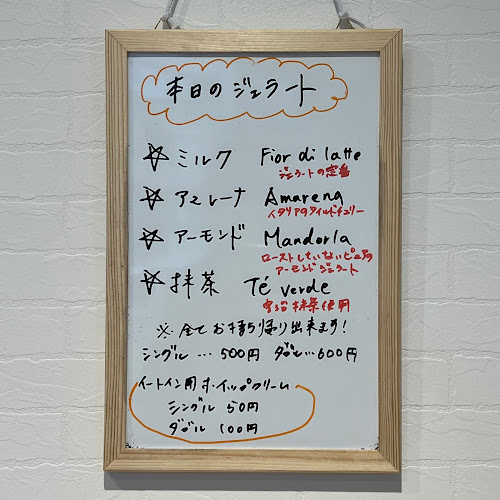 本日のジェラート
☆ ミルク Fior di latte
ジェラートの定番
☆ アマレーナ Amarena
イタリアのワイルドチェリー
☆ アーモンド Mandorla
ローストしていないピュアの
アーモンドジェラート
☆ 抹茶 Té verde
宇治抹茶使用
※全てお持ち帰り出来ます!
シングル…500円 ダブル…600円
イートイン用ホイップクリーム
シングル 50円
ダブル 100円